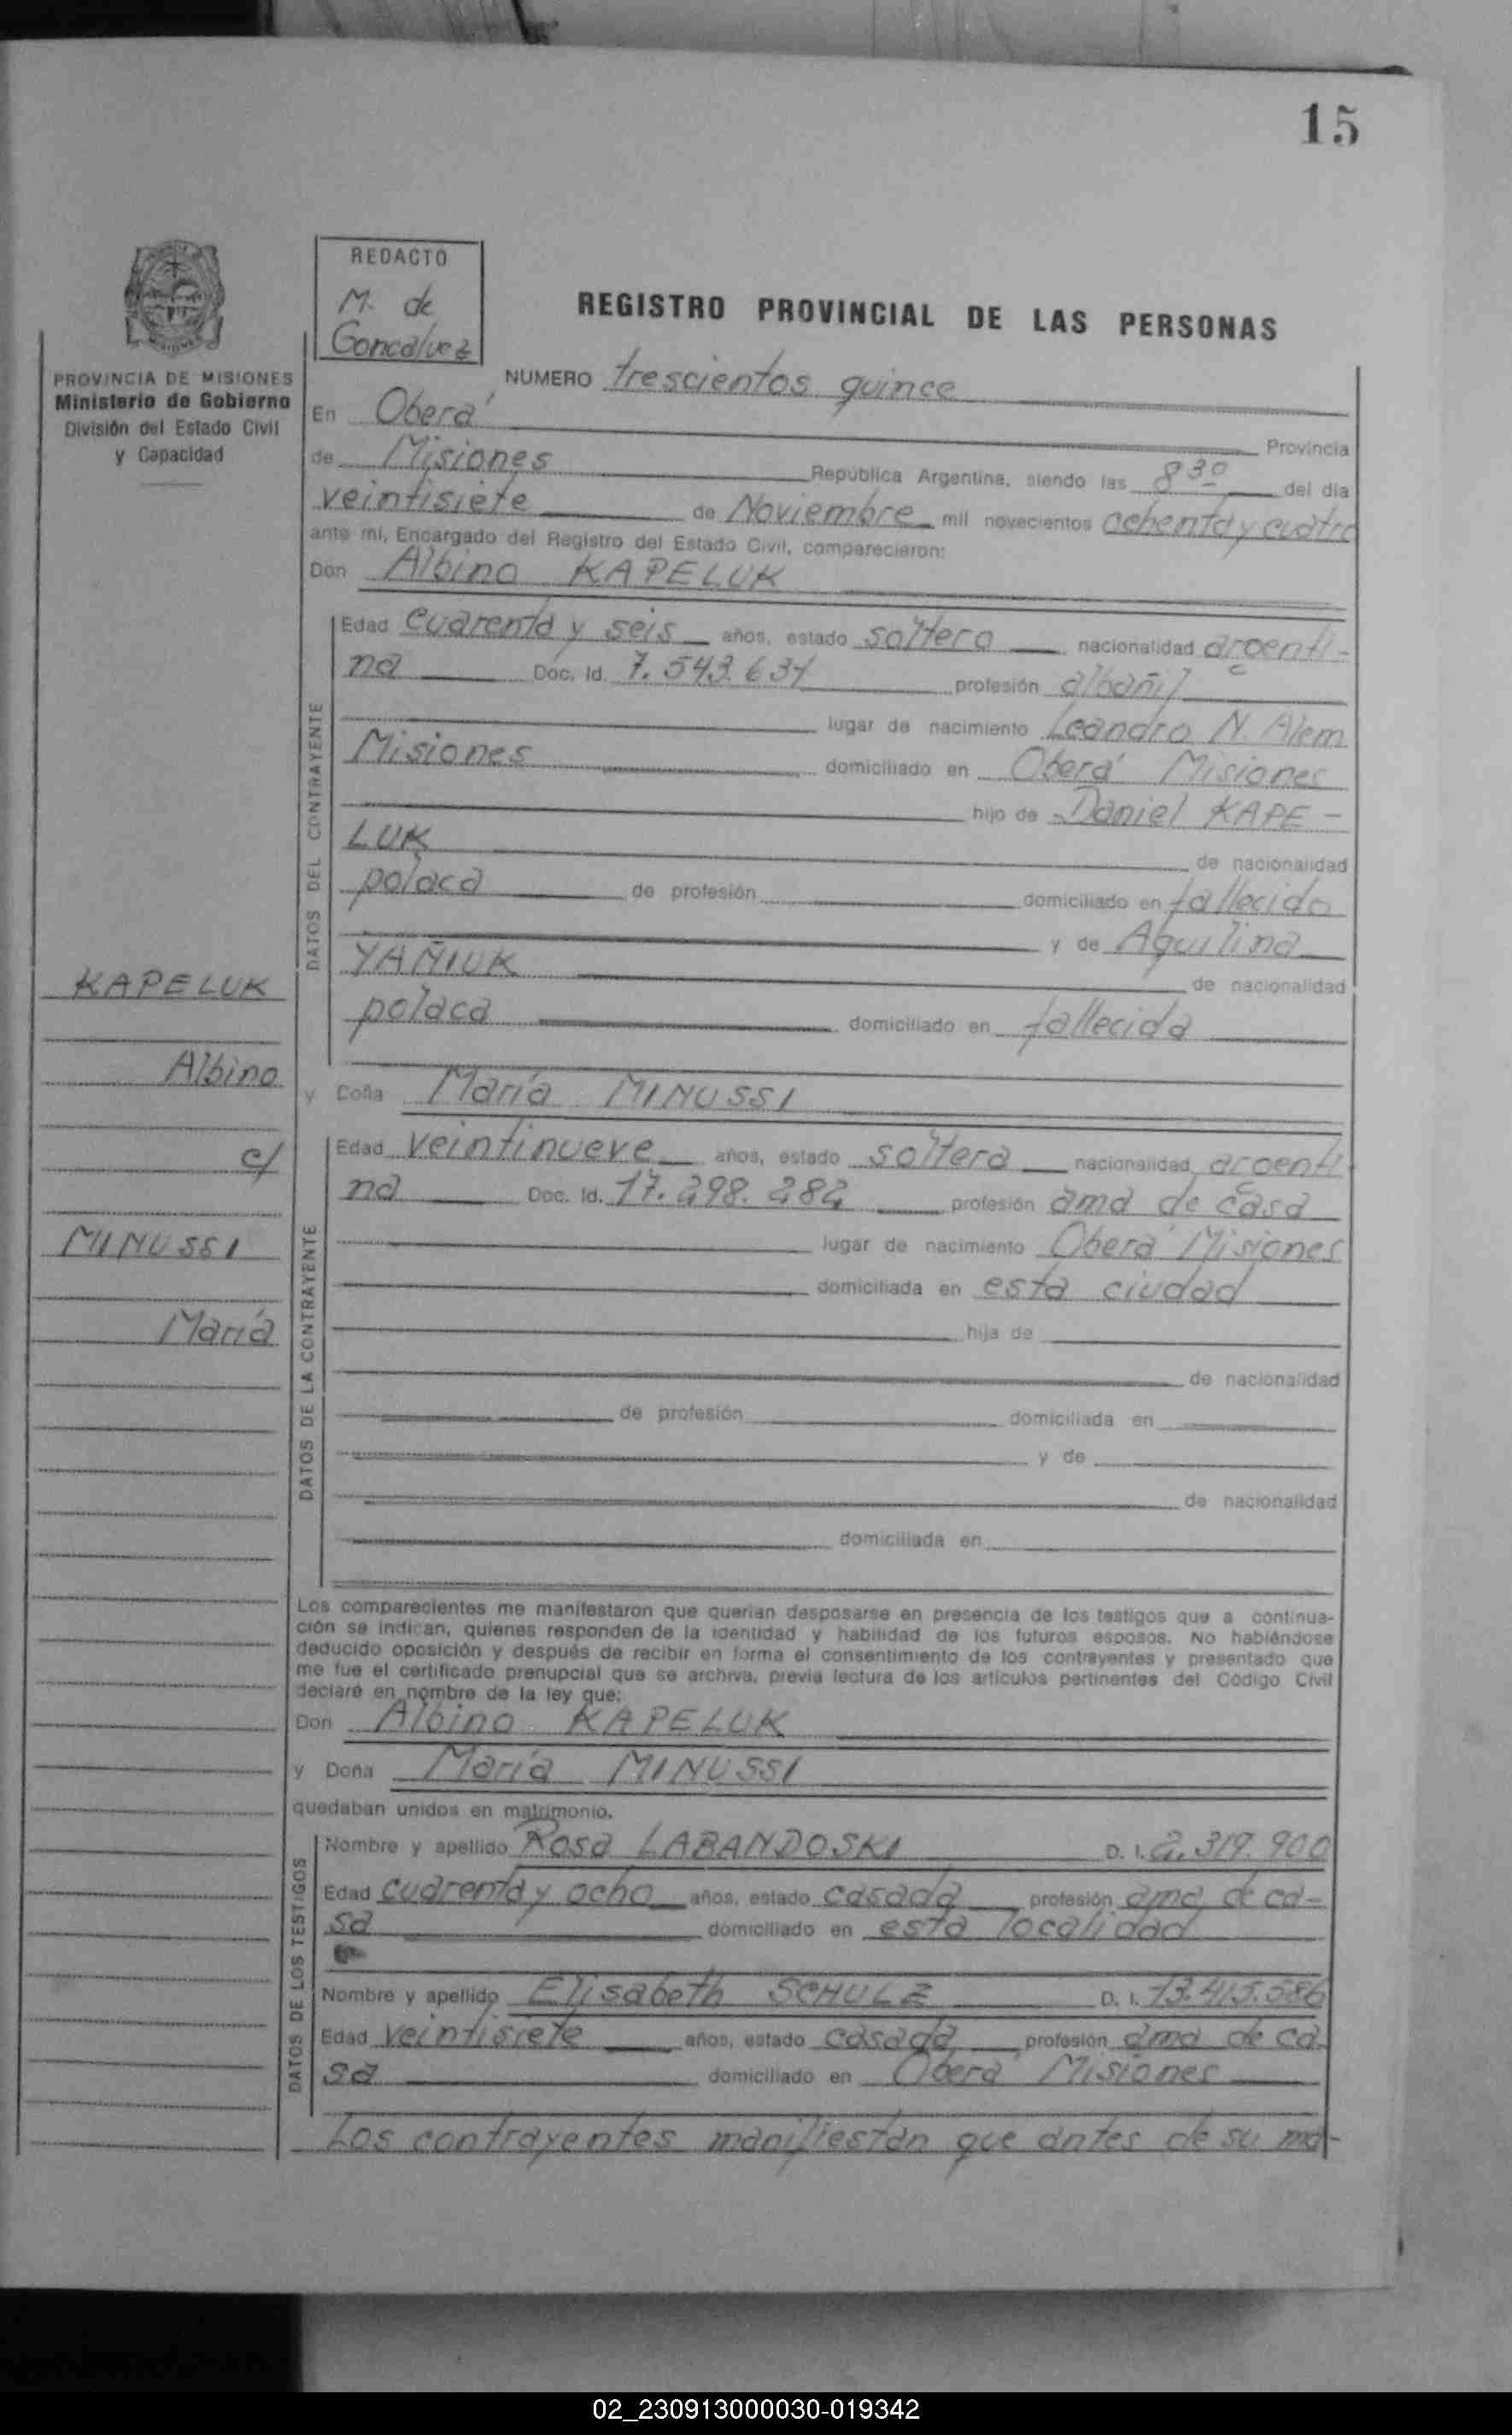 15
REDACTO
M. de
Goncalvez
REGISTRO PROVINCIAL DE LAS PERSONAS
PROVINCIA DE MISIONES
Ministerio de Gobierno
División del Estado Civil
y Capacidad
NUMERO trescientos quince
En Oberá Provincia
de Misiones República Argentina, siendo las 8 30 del día
veintisiete de Noviembre mil novecientos ochenta y cuatro
ante mi, Encargado del Registro del Estado Civil, comparecieron:
Don Albino KAPELUK
DATOS DEL CONTRAYENTE
Edad cuarenta y seis años, estado soltero nacionalidad argenti-
na Doc. Id. 7.543.634 profesión albañil
lugar de nacimiento Leandro N. Alem
Misiones domiciliado en Oberá Misiones
hijo de Daniel KAPE-
LUK de nacionalidad
polaca de profesión domiciliado en fallecido
y de Aquilina
YAÑIUK de nacionalidad
polaca domiciliado en fallecida
KAPELUK
Albino
c/
MINUSSI
María
y Doña María MINUSSI
DATOS DE LA CONTRAYENTE
Edad veintinueve años, estado soltera nacionalidad argenti
na Doc. Id. 17.298.282 profesión ama de casa
lugar de nacimiento Oberá Misiones
domiciliada en esta ciudad
hija de
de nacionalidad
de profesión domiciliada en
y de
de nacionalidad
domiciliada en
Los comparecientes me manifestaron que querían desposarse en presencia de los testigos que a continua-
ción se indican, quienes responden de la identidad y habilidad de los futuros esposos. No habiéndose
deducido oposición y después de recibir en forma el consentimiento de los contrayentes y presentado que
me fue el certificado prenupcial que se archiva, previa lectura de los artículos pertinentes del Código Civil
declaré en nombre de la ley que:
Don Albino KAPELUK
y Doña María MINUSSI
quedaban unidos en matrimonio.
DATOS DE LOS TESTIGOS
Nombre y apellido Rosa LABANDOSKI D. I. 2.319.900
Edad cuarenta y ocho años, estado casada profesión ama de ca-
sa domiciliado en esta localidad
Nombre y apellido Elisabeth SCHULZ D. I. 13.415.586
Edad veintisiete años, estado casada profesión ama de ca-
sa domiciliado en Oberá Misiones
Los contrayentes manifiestan que antes de su ma-
02_230913000030-019342